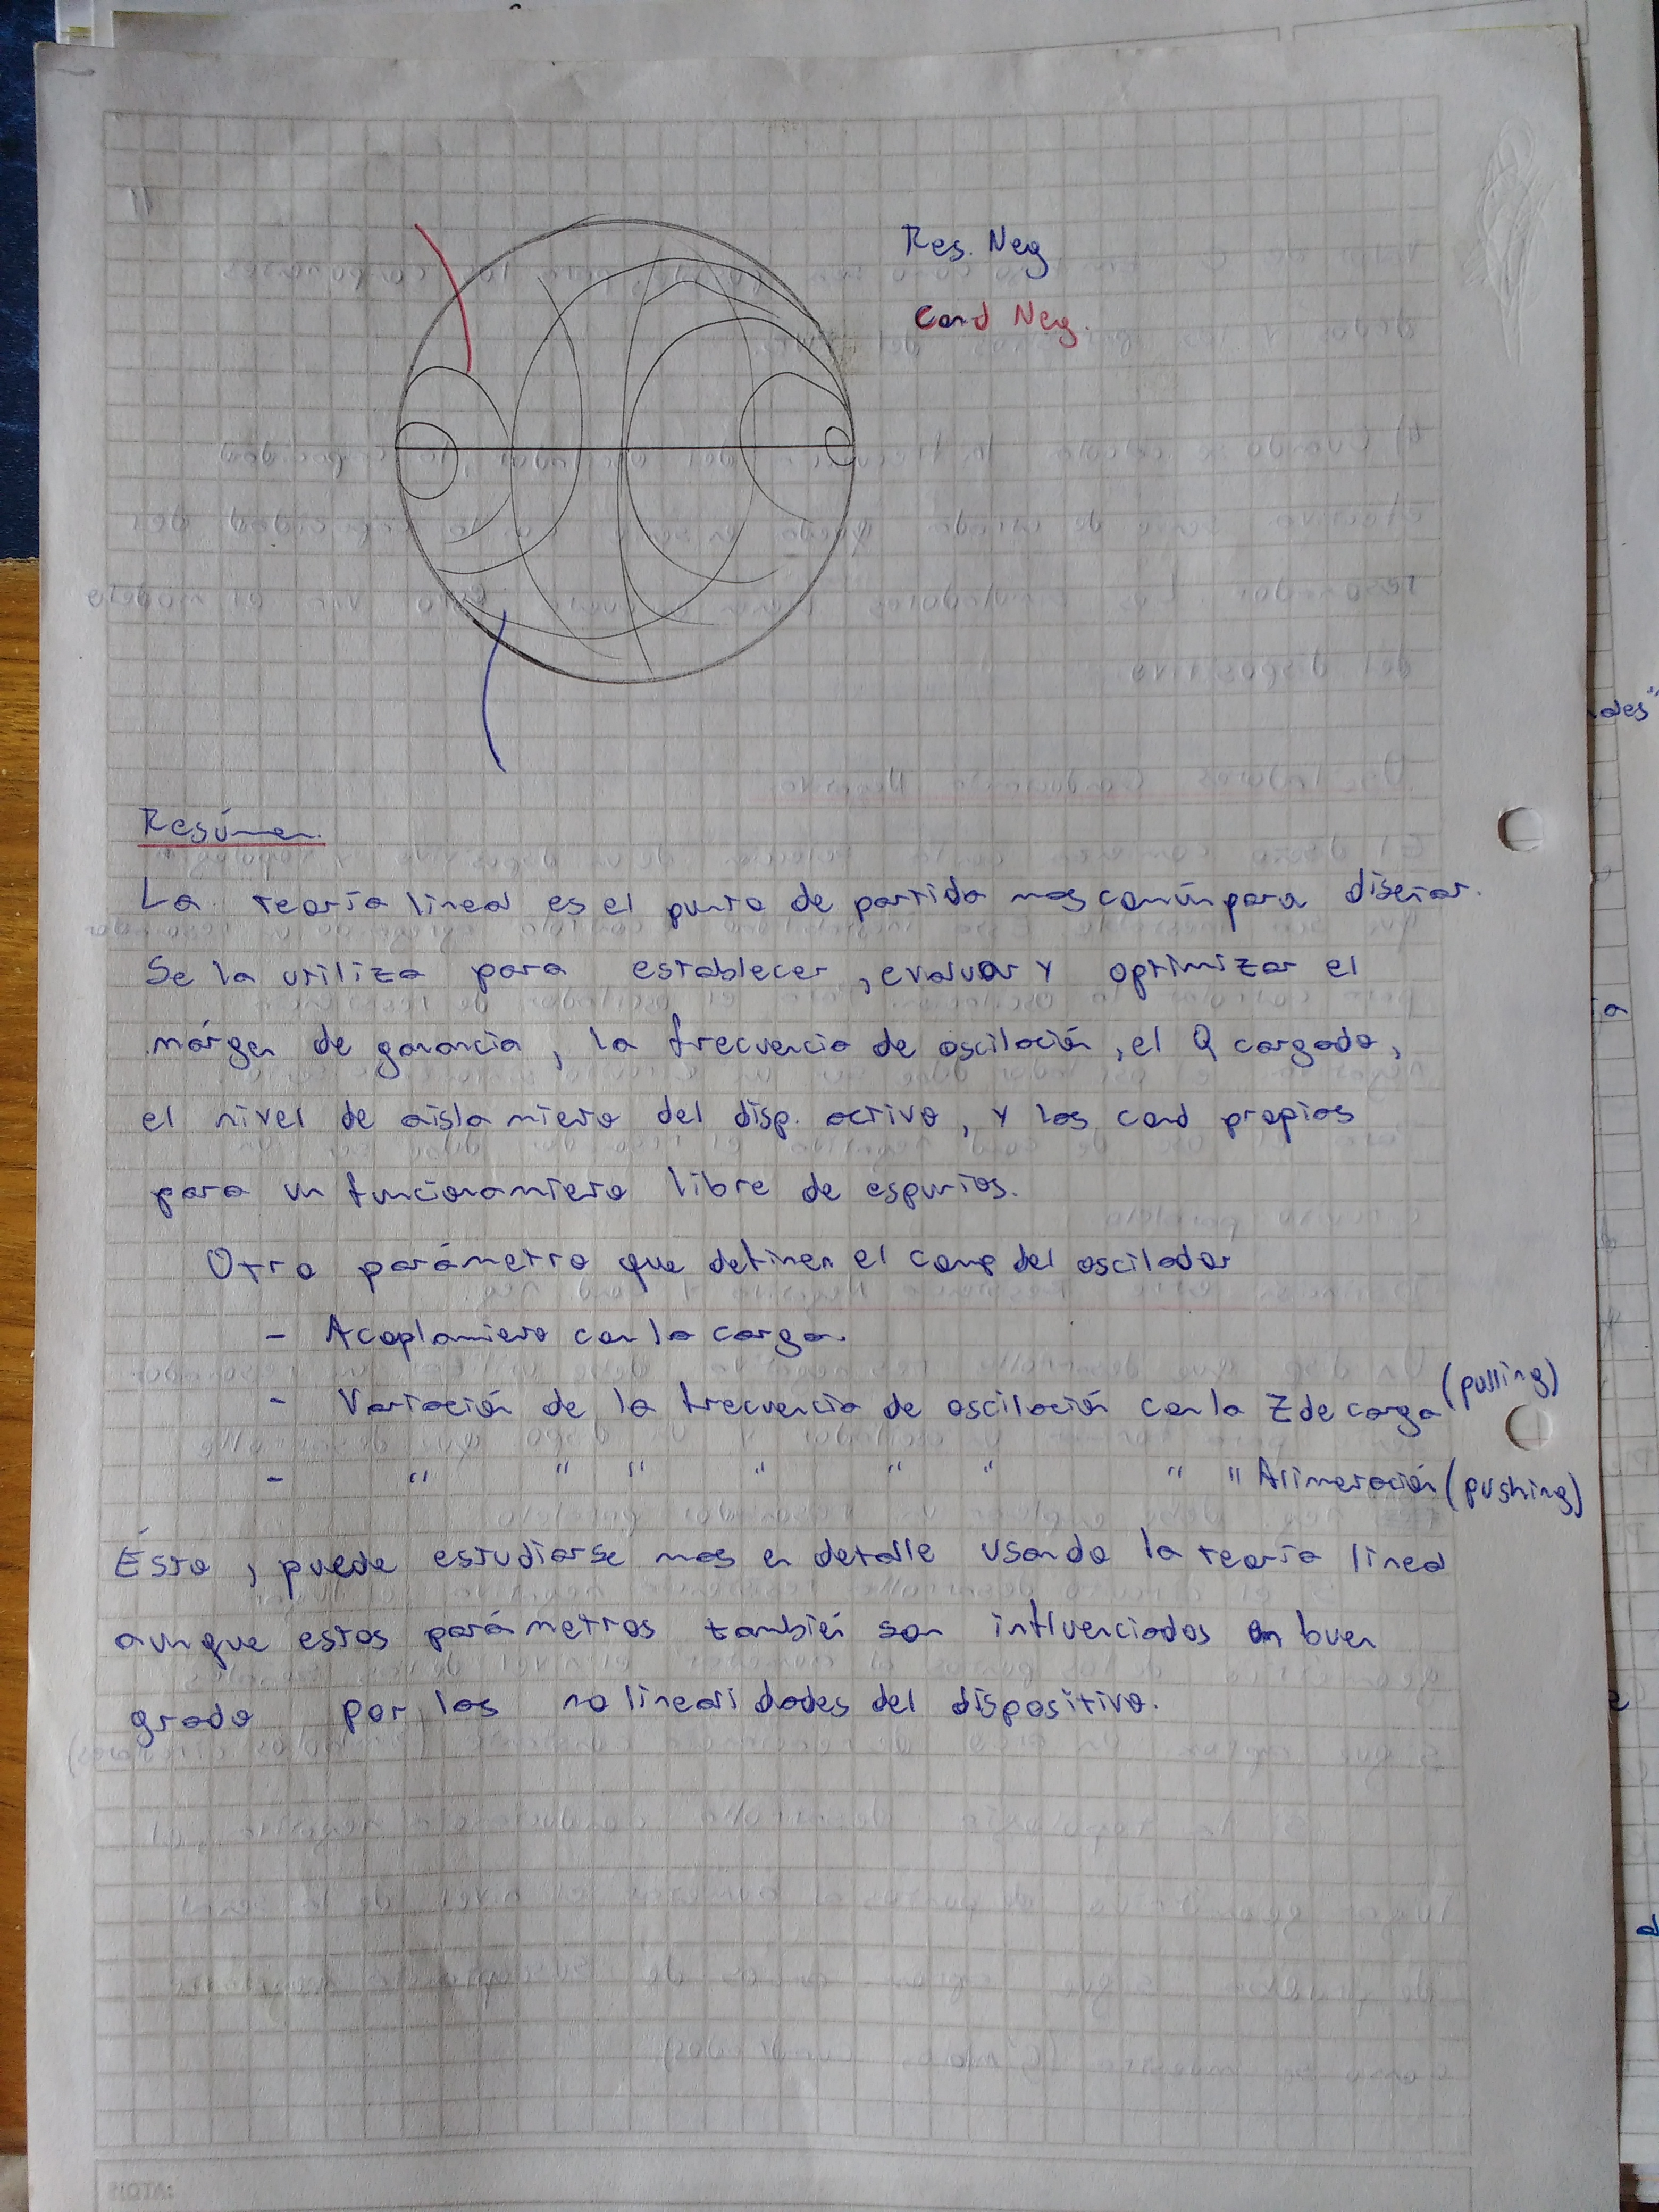 Res. Neg
Cond Neg.
Resúmen.
La teoría lineal es el punto de partida mas común para diseñar.
Se la utiliza para establecer, evaluar y optimizar el
márgen de ganancia, la frecuencia de oscilación, el Q cargado,
el nivel de aislamiento del disp. activo, y las cond propias
para un funcionamiento libre de espurios.
Otro parámetro que definen el comp del oscilador
- Acoplamiento con la carga.
- Variación de la frecuencia de oscilación con la Z de carga (pulling)
- " " " " " " " " Alimentación (pushing)
Ésto, puede estudiarse mas en detalle usando la teoría lineal
aunque estos parámetros también son influenciados en buen
grado por las no linealidades del dispositivo.